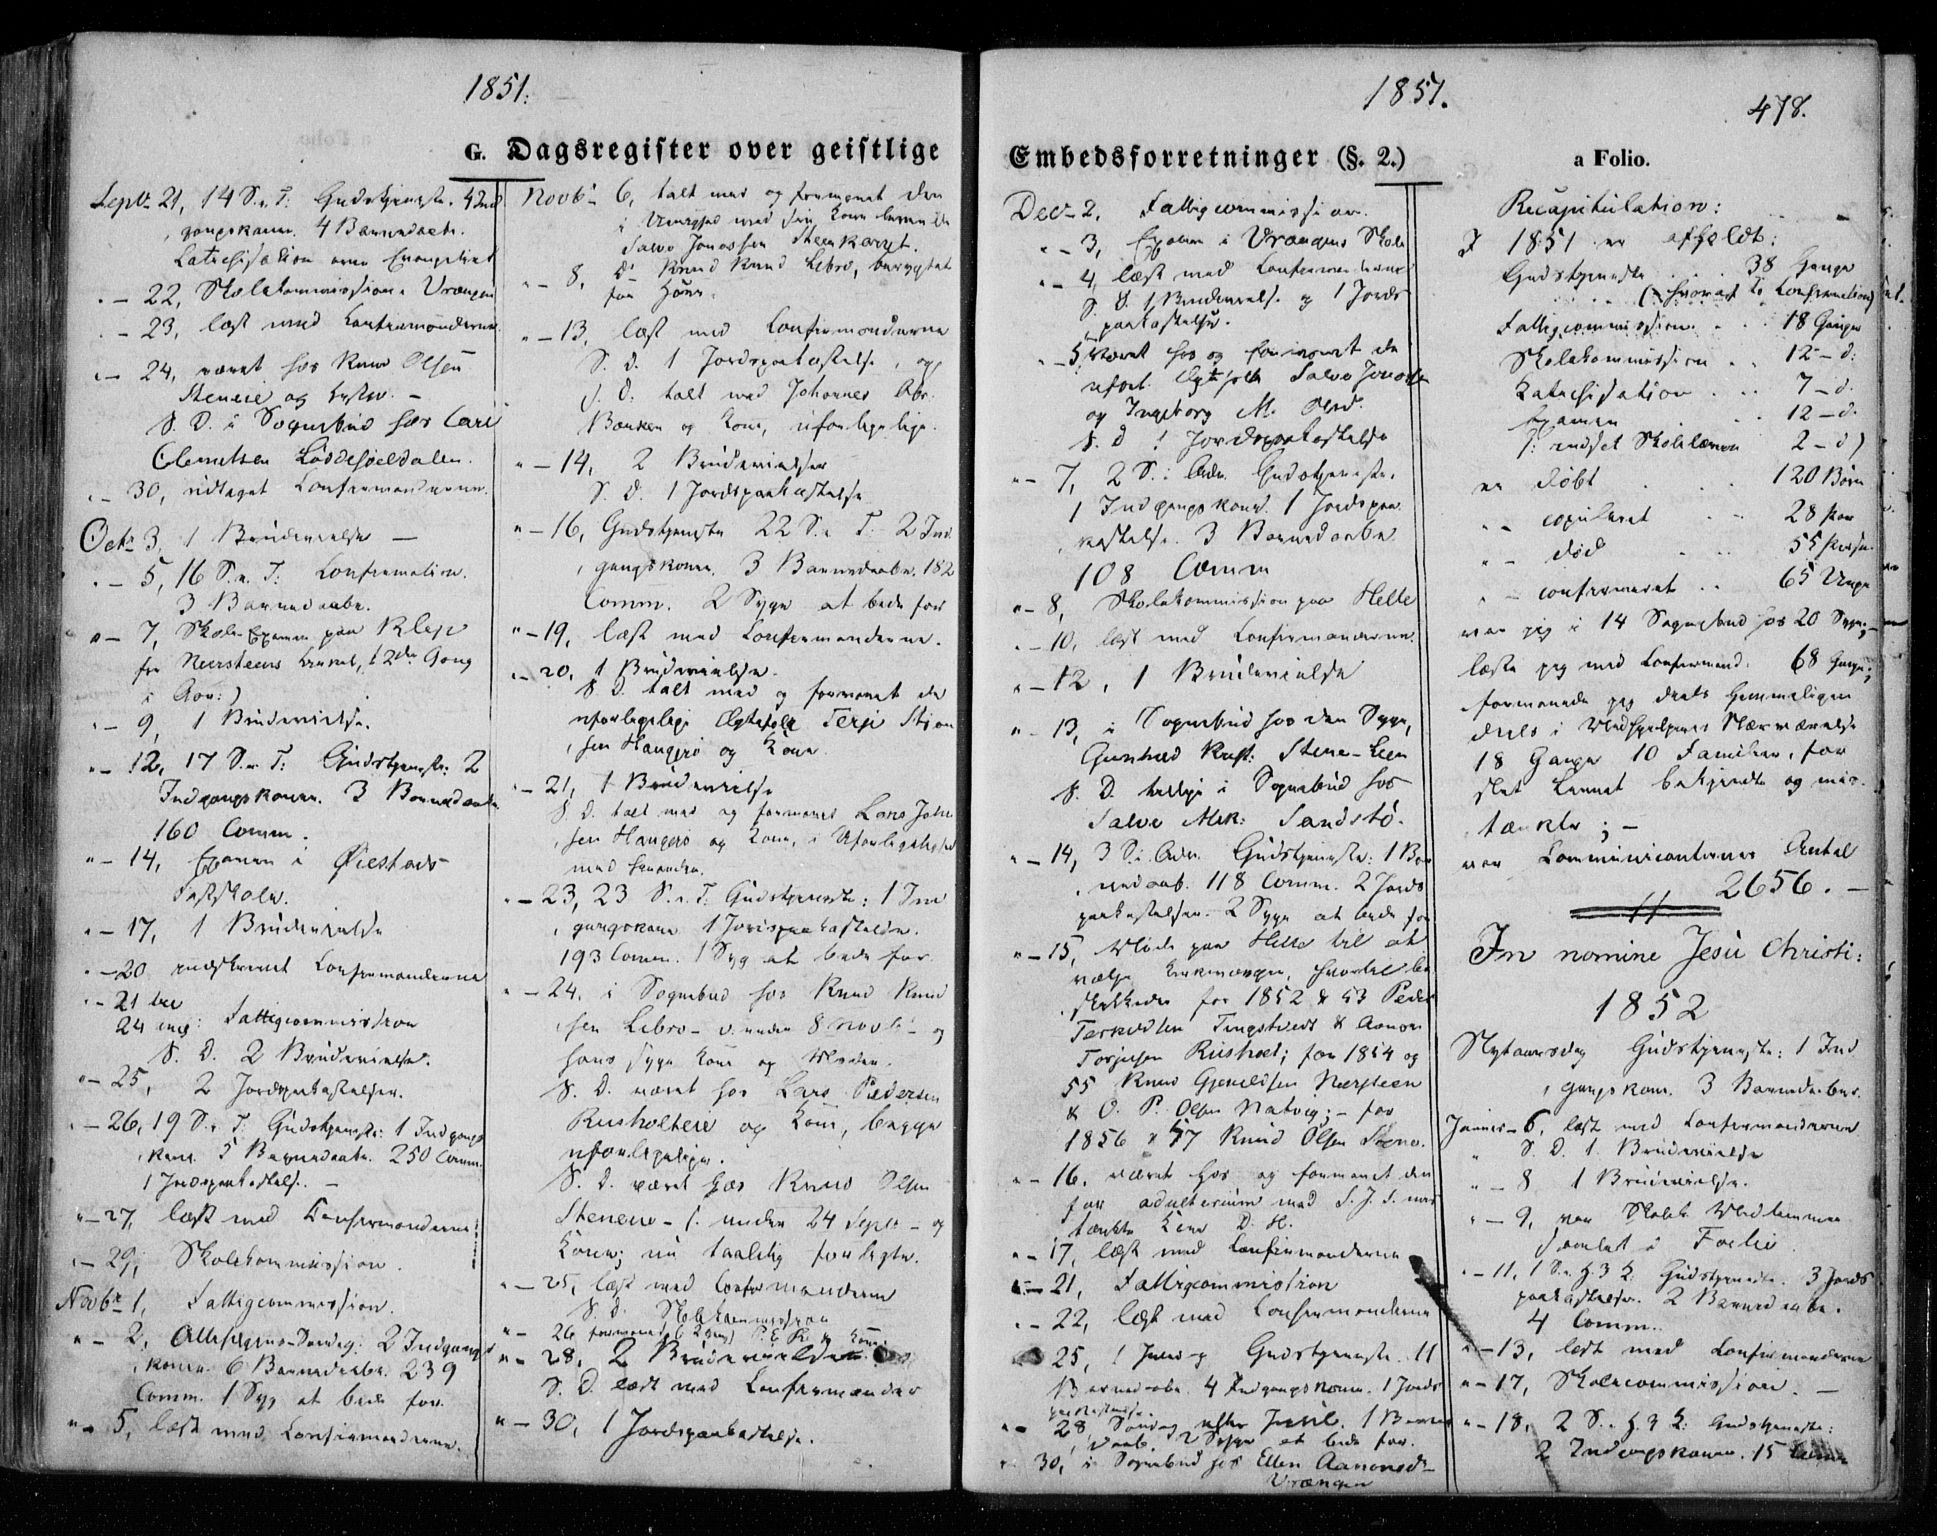 1851.
G. Dagsregister over geistlige
Septr 21, 14 S. e. T: Gudstjeneste. 4 Ind
gangskoner. 4 Barnedaabe.
Catechisation over Evangeliet
" - 22, Skolekommission. Vrængen
" - 23, læst med Confirmanderne
" - 24, været hos Knud Olsen
Steneie og
S. D. i Sognebud hos Carl
Clemetsen Løddesøeldalen.
" - 30, udtaget Confirmanderne.
Octr 3, 1 Brudevielse -
" - 5, 16 S. e. T: Confirmation.
3 Barnedaabe.
" - 7, Skole-Examen paa Klep
for Neersteens 2den Gang
i Aar:)
" - 9, 1 Brudevielse.
" - 12, 17 S. e. T: Gudstjeneste: 2
Indgangskoner. 3 Barnedaabe.
160 Comm.
" - 14, Examen i Øiestads
Fastskole.
" - 17, 1 Brudevielse
" - 20, indskrevet Confirmanderne
" - 21
24 Fattigcommission
S. D. 2 Brudevielser.
" - 25, 2 Jordspaakastelser.
" - 26, 19 S. e. T: Gudstjeneste: 1 Indgangs
kone. 5 Barnedaabe. 250 Comm.
1 Jordspaakastelse. -
" - 27, læst med Confirmanderne.
" - 29, Skolekommission.
Novbr 1, Fattigcommission.
" - 2, Allehelgens-Søndag: 2 Indgangs
koner. 6 Barnedaabe. 239
Comm. 1 Syg at bede for.
" - 5, læst med Confirmanderne.
Novbr 6, talt med og formanet den
i Uenighed med sin Kone levende
Salve Jonassen Steenkorset.
" - 8, D. Knud Knud Lebro, berygtet
for
" - 13, læst med Confirmanderne
S. D. 1 Jordspaakastelse, og
S. D. talt med Johannes Abr.
og Kone, uforligelige.
" - 14, 2 Brudevielser
S. D. 1 Jordspaakastelse
" - 16, Gudstjeneste 22 S. e. T: 2 Ind
gangskoner. 3 Barnedaabe. 182
Comm. 2 Syge at bede for
" - 19, læst med Confirmanderne.
" - 20, 1 Brudevielse.
S. D. talt med og formanet de
uforligelige Ægtefolk Terje
sen Haugerø og Kone.
" - 21, 1 Brudevielse
S. D. talt med og formanet Lars John
sen Haugerø og Kone, i Uforligelighed
med hinanden.
" - 23, 23 S. e. T. Gudstjeneste: 1 Ind
gangskone 1 Jordspaakastelse.
193 Comm. 1 Syg at bede for.
" - 24, i Sognebud hos Knud Knud
sen Lebro - v. under 8 Novbr - og
hans syge Kone og Moder.
S. D. været hos Lars Pedersen
Rusholteie og Kone, begge
uforligelige.
S. D. været hos Knud Olsen
Steneie - (: under 24 Septr - og
Kone; nu taalelig forligte.
" - 25, læst med Confirmanderne
S. D. Skolekommission
" - 26 formanet (2 Gang) P. E. R. & Kone.
" - 28, 2 Brudevielser.
S. D. læst med Confirmander
" - 30, 1 Jordspaakastelse.
1851.
478.
Embedsforretninger (§. 2.)
a Folio.
Decr 2, Fattigcommission.
" - 3, Examen i Vrængens Skole
" - 4, læst med Confirmanderne
S. D. 1 Brudevielse og 1 Jords
paakastelse.
" - 5, været hos og formanet de
uforl. Ægtefolk Salve Jonassen
og Ingeborg M. Olsd.
S. D. 1 Jordspaakastelse
" - 7, 2 S. i Adv. Gudstjeneste.
1 Indgangskone. 1 Jordspaa
kastelse. 3 Barnedaabe
108 Comm
" - 8, Skolekommission paa Helle
" - 10, læst med Confirmanderne
" - 12, 1 Brudevielse
" - 13, i Sognebud hos den Syge,
Gunhild Stene-Eien
S. D. tillige i Sognebud hos
Salve Mek: Sandstø.
" - 14, 3 S. i Adv. Gudstjeneste: 1 Bar
nedaab. 118 Comm. 2 Jords
paakastelser. 2 Syge at bede for
" - 15, Møde paa Helle til at
vælge hvortil be
skikkedes for 1852 & 53 Peder
Terkildsen Tingstvedt & Aanon
Torjusen Rusholt; for 1854 og
55 Knud Gjeruldsen Neersteen
& O. P. Olsen Natvig; - for
1856 & 57 Knud Olsen Stene.
" - 16, været hos og formanet den
for adulterium med S. J. S. mis
tænkte Kone D. H.
" - 17, læst med Confirmanderne
" - 21, Fattigcommission
" - 22, læst med Confirmanderne
25, 1 Juledag Gudstjeneste. 11
Barnedaabe. 4 Indgangskoner. 1 Jords
paakastelse.
" - 28 Søndag efter Juul. 1 Barne
daab. 2 Syge at bede for.
" 30, i Sognebud hos Ellen Aanonsd.
Vrængen
Recapitulation:
I 1851 er afholdt:
Gudstjeneste . . 38 Gange
(: hvoraf to Confirmation)
Fattigcommission . . 18 Gange
Skolekommission . . 12 - d:
Katechisation . . . 7 - d.
Examen . . 12 - d.
(: indsat Skolelærere 2 - d)
er døbt . . . 120 Børn
" - copuleret . . 28 Par
" - død . . . 55 Person.
" - confirmeret . . 65 Unge
var jeg i 14 Sognebud hos 20 Syge; -
læste jeg med Confirmand. 68 Gange;
formanede jeg deels hemmeligen
deels i Medhjelpernes Nærværelse
18 Gange 10 Familier, for
slet Levnet bekjendte og mis-
tænkte; -
var Communicanternes Antal
2656. -
In nomine Jesu Christi:
1852
Nytaarsdag Gudstjeneste: 1 Ind
gangskone. 3 Barnedaaber.
Januar - 6, læst med Confirmanderne
" S. D. 1 Brudevielse
" - 8 1 Brudevielse.
" - 9, var Skole Medlemmer
samlet i Foelie
" - 11, 1 S. e. H. 3 K. Gudstjeneste. 3 Jords
paakastelser. 2 Barnedaabe.
4 Comm.
" - 13, læst med Confirmanderne
" - 17, Skolecommission. -
" - 18, 2 S. e. H. 3 K: Gudstjeneste:
2 Indgangskoner. 15 Comm